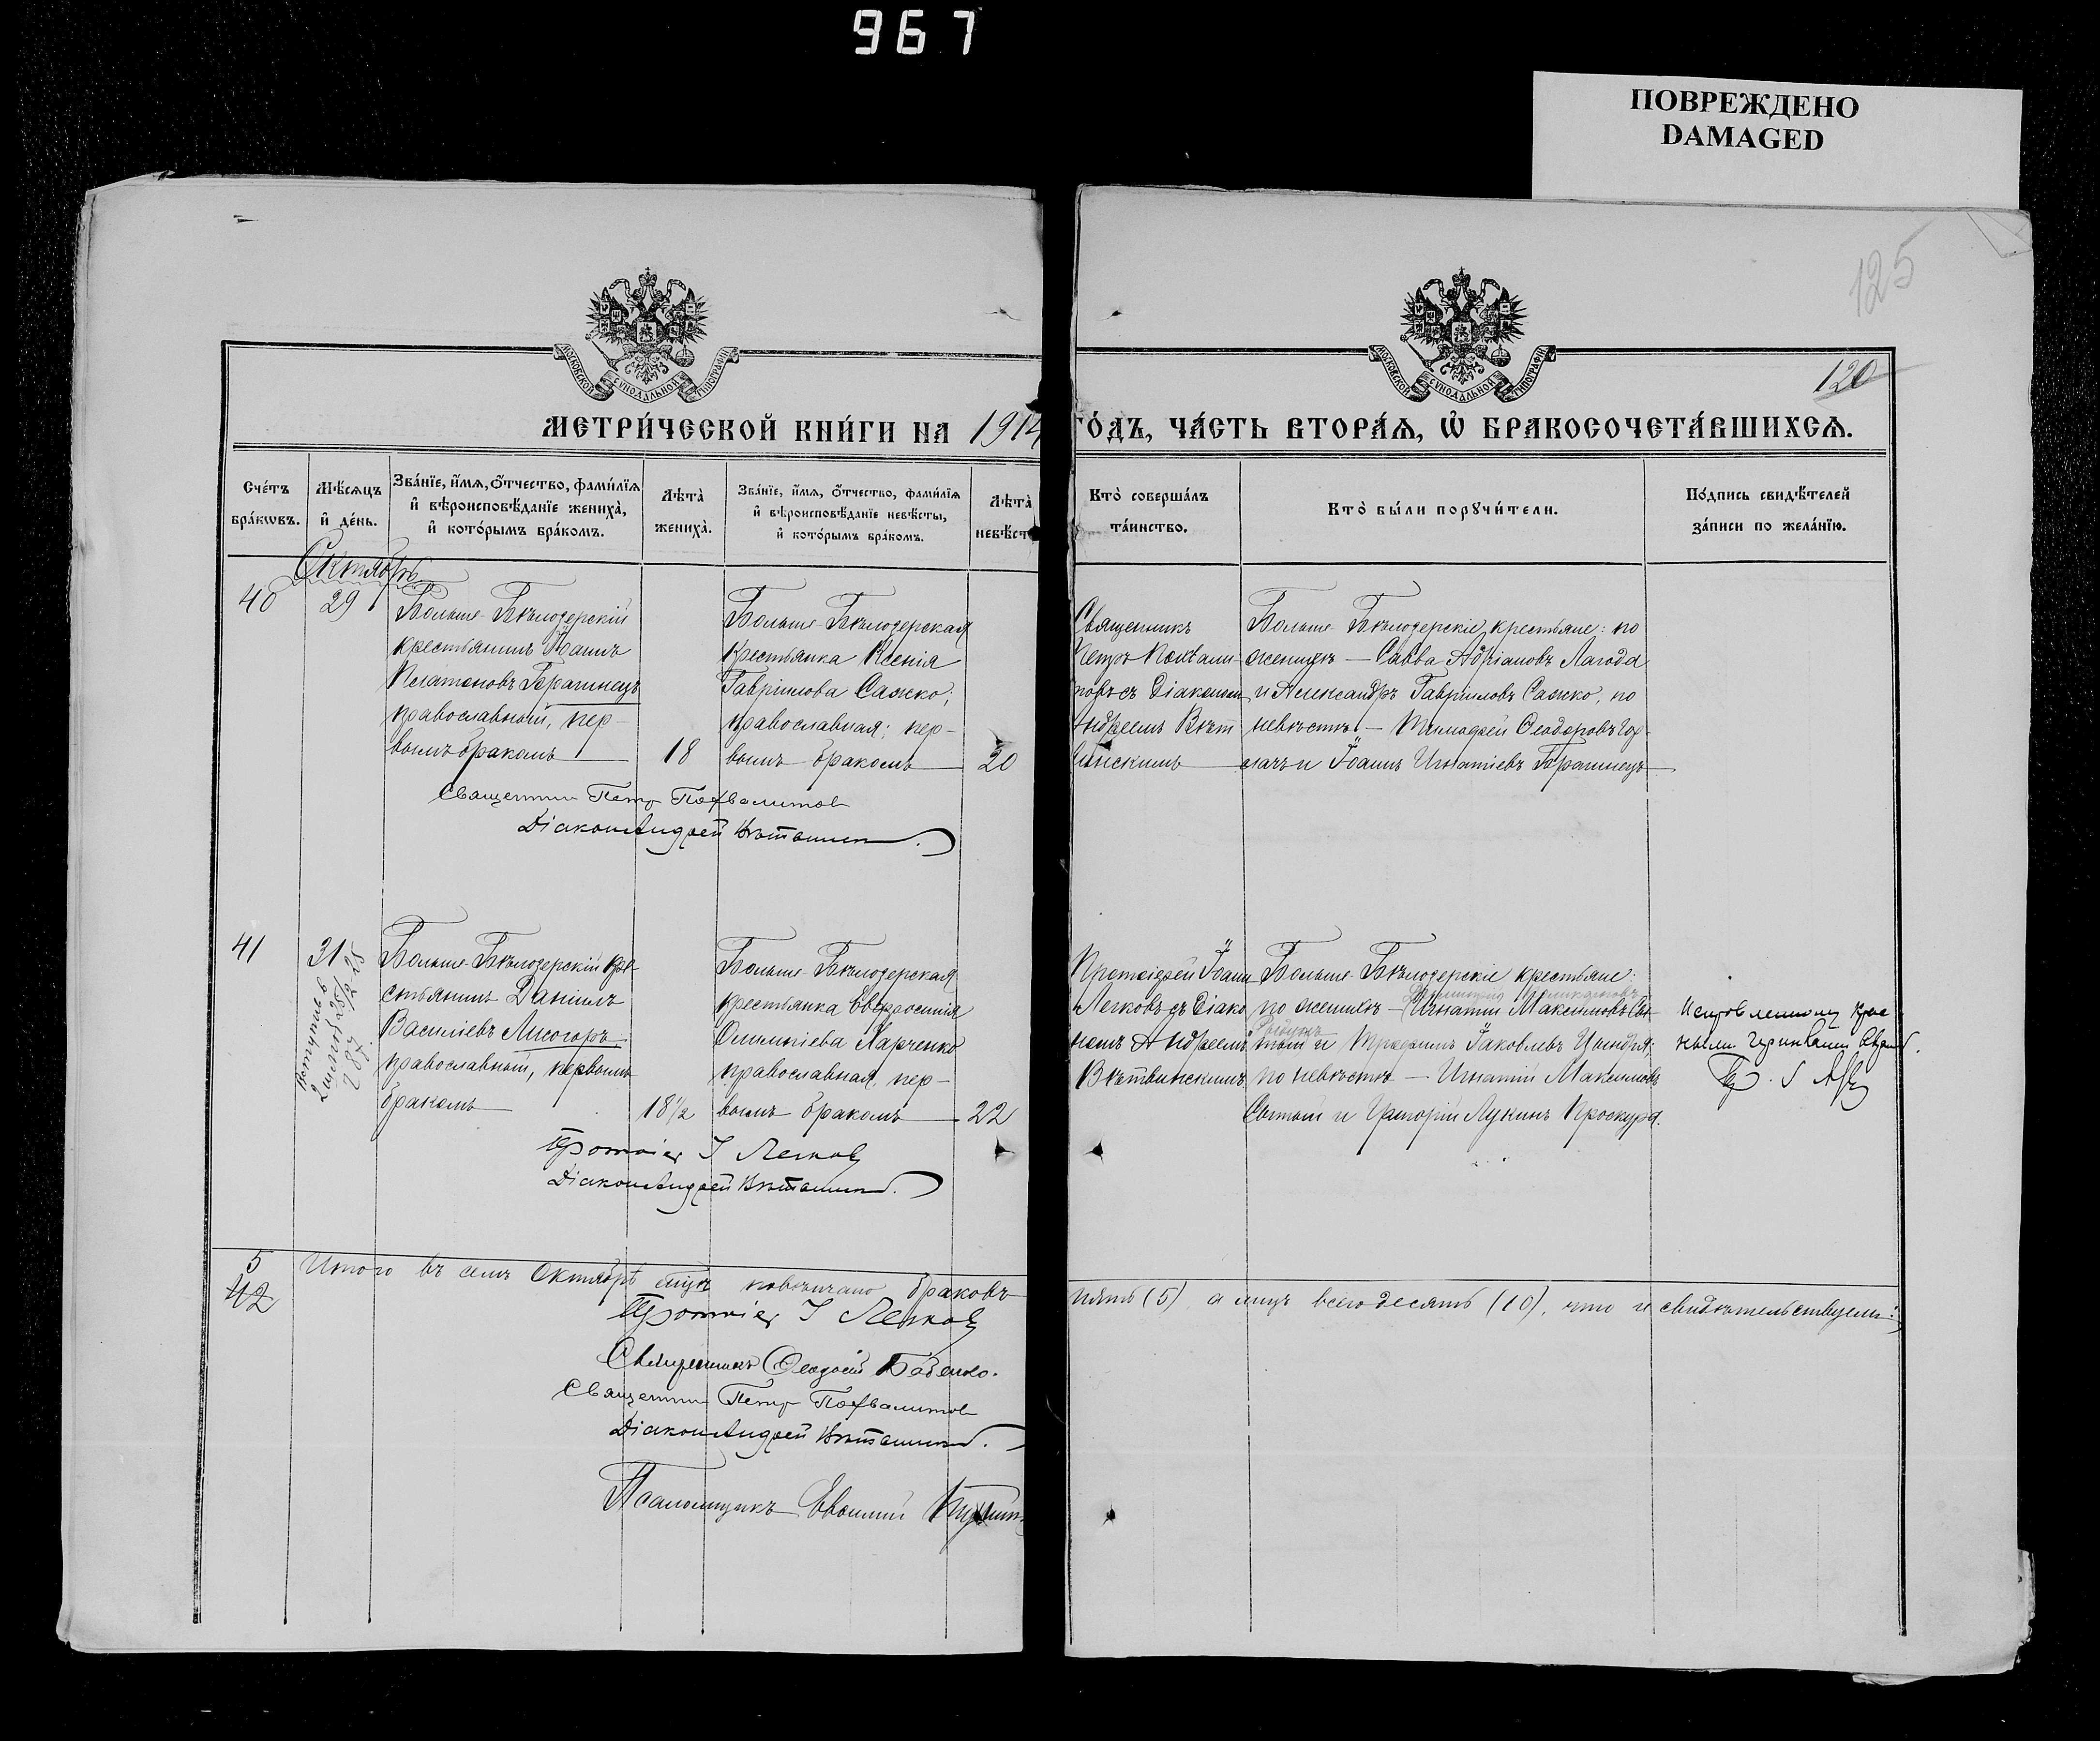 967
ПОВРЕЖДЕНО
DAMAGED
125
120
МОСКОВСКОЙ СѴНОДАЛЬНОЙ ТИПОГРАФІИ
МОСКОВСКОЙ СѴНОДАЛЬНОЙ ТИПОГРАФІИ
МЕТРИ́ЧЕСКОЙ КНИ́ГИ НА 1914
ГО́ДЪ, ЧА́СТЬ ВТОРА́Ѧ, Ѽ БРАКОСОЧЕТА́ВШИХСѦ.
Сче́тъ
бра́кѡвъ.
Мѣ́сѧцъ
и҆ де́нь.
Зва́нїе, и҆́мѧ, о҆́тчество, фами́лїѧ
и҆ вѣроисповѣ́данїе жениха̀,
и҆ кото́рымъ бра́комъ.
Лѣта̀
жениха̀.
Зва́нїе, и҆́мѧ, о҆́тчество, фами́лїѧ
и҆ вѣроисповѣ́данїе невѣ́сты,
и҆ кото́рымъ бра́комъ.
Лѣта̀
невѣ́ст
Кто̀ соверша́лъ
та́инство.
Кто̀ бы́ли порꙋчи́тели.
По́дпись свидѣ́телей
за́писи по жела́нїю.
Октябрь
40
29
Больше-Бѣлозерскій
крестьянинъ Іоаннъ
Платоновъ Брагинецъ
православный, пер-
вымъ бракомъ
18
Больше-Бѣлозерская
крестьянка Ксенія
Гавріилова Сажко;
православная; пер-
вымъ бракомъ
20
Священникъ
Петръ Похвали-
товъ съ Діакономъ
Андреемъ Вѣт
винскимъ
Больше-Бѣлозерскіе крестьяне: по
женихѣ — Савва Адріановъ Лагода
и Александръ Гавриловъ Сажко, по
невѣстѣ — Тимофей Ѳеодоровъ
и Іоаннъ Игнатіевъ Брагинецъ
Священник Петр Похвалитов
Діакон Андрей Вѣтвинск.
41
31
28/2 25
287
Больше-Бѣлозерскій кре-
стьянинъ Даніилъ
Василіевъ Лисогоръ
православный, первымъ
бракомъ
18 1/2
Больше-Бѣлозерская
крестьянка Евфросинія
Олимпіева Харченко
православная, пер-
вымъ бракомъ
22
Протоіерей Іоаннъ
Легковъ съ Діако
номъ Андреемъ
Вѣтвинскимъ
Больше-Бѣлозерскіе крестьяне:
по женихѣ — Игнатій Максимовъ Сы-
тый и Трофимъ Іаковлевъ Цындря;
по невѣстѣ — Игнатій Максимовъ
Сытый и Григорій Лукинъ Проскура.
Исправленному крас
ными чернилами вѣрить.
Протоіер І Легковъ
Діакон Андрей Вѣтвинск.
5
42
Итого въ семъ Октябрѣ мцѣ повѣнчано браковъ
пять (5), а лицъ всего десять (10), что и свидѣтельствуемъ:
Протоіер І Легковъ
Священникъ Ѳеодосій Бабенко.
Священник Петр Похвалитов
Діакон Андрей Вѣтвинск.
Псаломщикъ Евѳимій